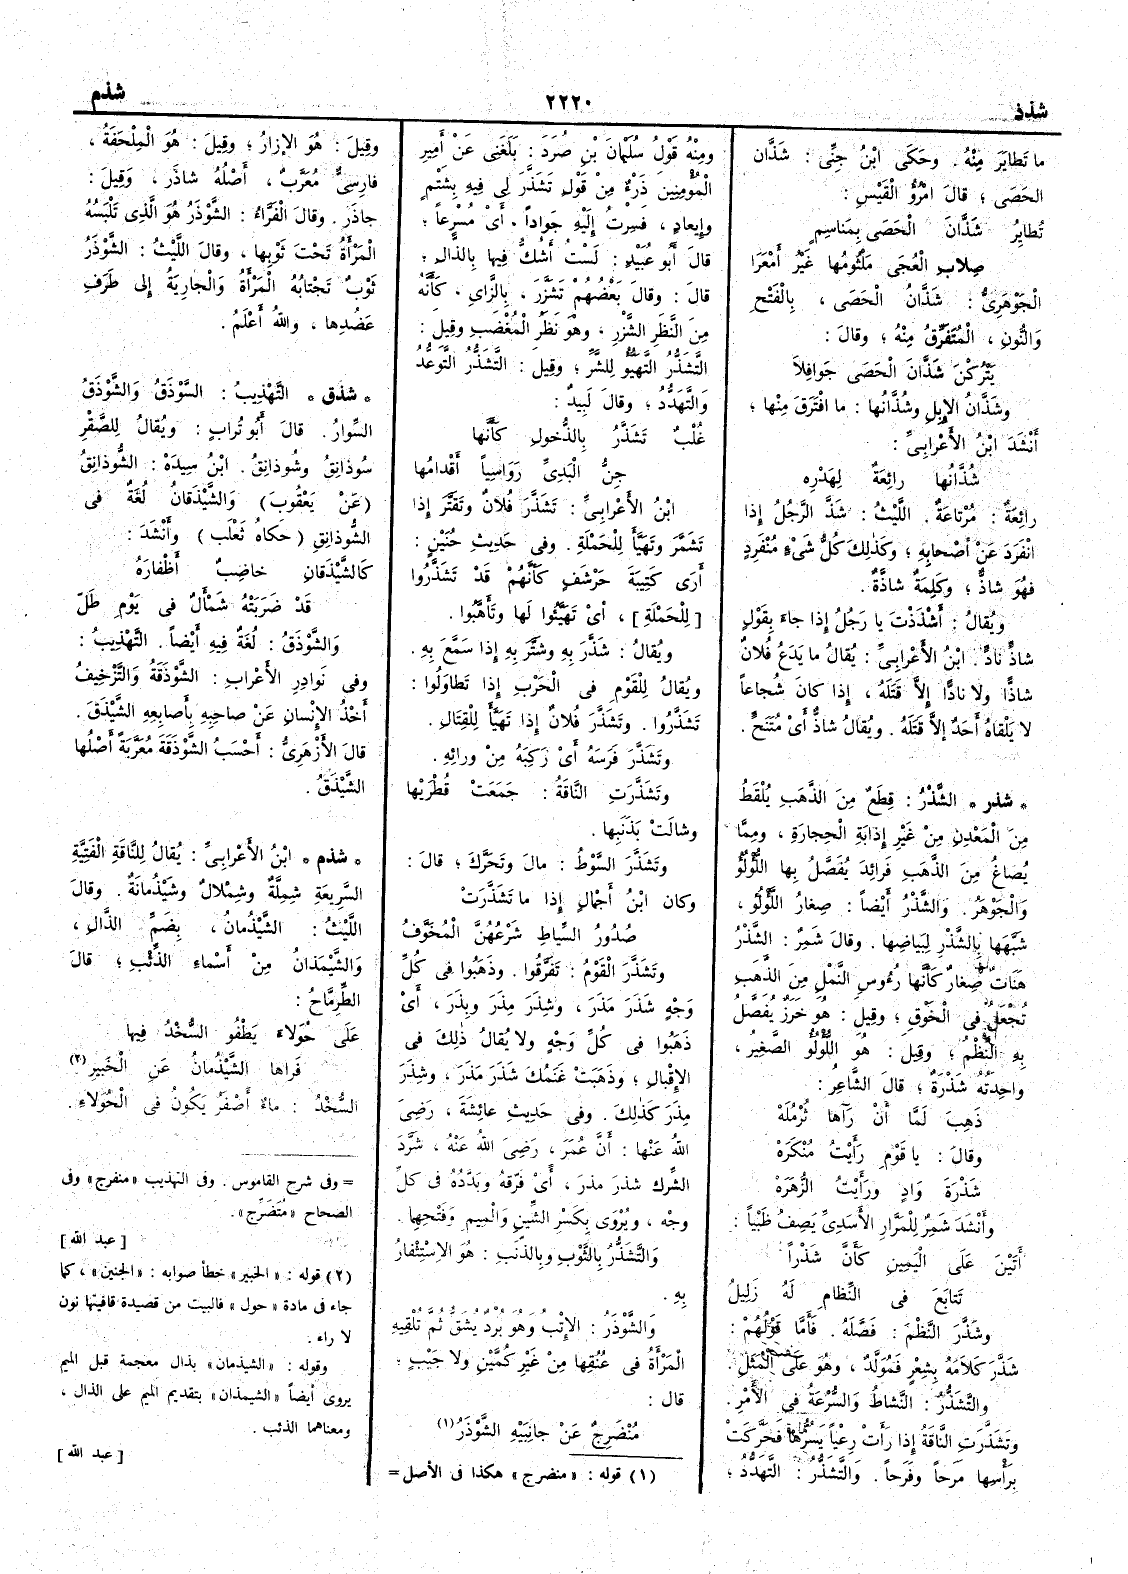 شذذ
٢٢٢٠
شذم
ما تَطايَر مِنْهُ . وحَكَى ابْنُ جِنِّى : شَذَّان
الحَصَى ؛ قالَ امْرُؤُ الْقَيْسِ :
تُطايِرُ شَذَّانَ الْحَصَى بِمَناسِمٍ
صِلابِ الْعُجَى مَلْثُومُها غَيْرُ أَمْعَرَا
الْجَوْهَرِىُّ : شَذَّانُ الْحَصَى ، بِالْفَتْحِ
وَالنُّونِ ، الْمُتَفَرِّقُ مِنْهُ ؛ وقالَ :
يَتْرُكْنَ شَذَّانَ الْحَصَى جَوَافِلَا
وشَذَّانُ الإِبِلِ وشُذَّانُها : ما افْتَرَقَ مِنْها ؛
أَنْشَدَ ابْنُ الأَعْرابِىِّ :
شُذَّانُها رائِعَةٌ لِهَدْرِه
رائِعَةٌ : مُرْتاعَةٌ . اللَّيْثُ : شَذَّ الرَّجُلُ إِذا
انْفَرَدَ عَنْ أَصْحابِهِ ؛ وكَذٰلِكَ كُلُّ شَىْءٍ مُنْفَرِدٍ
فهْوَ شاذٌّ ؛ وكَلِمَةٌ شاذَّةٌ .
ويُقالُ : أَشْذَذْتَ يا رَجُلُ إِذا جاءَ بِقَوْلٍ
شاذٍّ نادٍّ . ابْنُ الأَعْرابِىِّ : يُقالُ ما يَدَعُ فُلانٌ
شاذًّا ولا نادًّا إِلاَّ قَتَلَهُ ، إِذا كانَ شُجاعاً
لا يَلْقاهُ أَحَدٌ إِلاَّ قَتَلَهُ . ويُقالُ شاذٌّ أَىْ مُتَنَحٍّ .
* شذر * الشَّذْرُ : قِطَعٌ مِنَ الذَّهَبِ يُلْقَطُ
مِنَ الْمَعْدِنِ مِنْ غَيْرِ إِذابَةِ الْحِجارَةِ ، ومِمَّا
يُصاغُ مِنَ الذَّهَبِ فَرائِدَ يُفَصَّلُ بِها اللُّؤْلُؤُ
وَالْجَوْهَرُ . وَالشَّذْرُ أَيْضاً : صِغارُ اللُّؤْلُؤِ ،
شَبَّهَها بِالشَّذْرِ لِبَياضِها . وقالَ شَمِرٌ : الشَّذْرُ
هَنَاتٌ صِغارٌ كَأَنَّها رُءُوسِ النَّمْلِ مِنَ الذَّهَبِ
تُجْعَلُ فِى الْخَوْقِ ؛ وقِيلَ : هُوَ خَرَزٌ يُفَصَّلُ
بِهِ النَّظْمُ ؛ وقِيلَ : هُوَ اللُّؤْلُؤُ الصَّغِيرُ ،
واحِدَتُهُ شَذْرَةٌ ؛ قالَ الشَّاعِرُ :
ذَهَبَ لَمَّا أَنْ رَآها ثُرْمُلَهْ
وقالَ : يا قَوْمِ رَأَيْتُ مُنْكَرَهْ
شَذْرَةَ وَادٍ ورَأَيْتُ الزُّهَرَهْ
وأَنْشَدَ شَمِرٌ لِلْمَرَّارِ الأَسَدِىِّ يَصِفُ ظَبْياً :
أَتَيْنَ عَلَى الْيَمِينِ كَأَنَّ شَذْراً
تَتابَعَ فى النِّظامِ لَهُ زَلِيلُ
وشَذَّرَ النَّظْمَ : فَصَّلَهُ . فَأَمَّا قَوْلُهُمْ :
شَذَّرَ كَلامَهُ بِشِعْرٍ فَمُوَلَّدٌ ، وهُوَ عَلَى الْمَثَلِ .
والتَّشَذُّرُ : النَّشاطُ وَالسُّرْعَةُ فِى الأَمْرِ .
وتَشَذَّرَتِ النَّاقَةُ إِذا رَأَتْ رِعْياً يَسُرُّها فَحَرَّكَتْ
بِرَأْسِها مَرَحاً وفَرَحاً . وَالتَّشَذُّرُ : التَّهَدُّدُ ؛
ومِنْهُ قَوْلُ سُلَيْمانَ بْنِ صُرَدَ : بَلَغَنِى عَنْ أَمِيرِ
الْمُؤْمِنِينَ ذَرْءٌ مِنْ قَوْلٍ تَشَذَّرَ لِى فِيهِ بِشَتْمٍ
وإِيعادٍ ، فَسِرْتُ إِلَيْهِ جَواداً . أَىْ مُسْرِعاً ؛
قالَ أَبُو عُبَيْدٍ : لَسْتُ أَشُكُّ فِيها بِالذَّالِ ؛
قالَ : وقالَ بَعْضُهُمْ تَشَزَّرَ ، بِالزَّاىِ ، كَأَنَّهُ
مِنَ النَّظَرِ الشَّزْرِ ، وهُوَ نَظَرُ الْمُغْضَبِ وقِيلَ :
التَّشَذُّرُ التَّهَيُّؤُ لِلشَّرِّ ؛ وقِيلَ : التَّشَذُّرُ التَّوَعُّدُ
وَالتَّهَدُّدُ ؛ وقالَ لَبِيدٌ :
غُلْبٌ تَشَذَّرُ بِالذُّحُولِ كَأَنَّها
جِنُّ الْبَدِىِّ رَوَاسِياً أَقْدامُها
ابْنُ الأَعْرابِىِّ : تَشَذَّرَ فُلانٌ وتَقَتَّرَ إِذا
تَشَمَّرَ وتَهَيَّأَ لِلْحَمْلَةِ . وفى حَدِيثِ حُنَيْنٍ :
أَرَى كَتِيبَةَ حَرْشَفٍ كَأَنَّهُمْ قَدْ تَشَذَّرُوا
[لِلْحَمْلَةِ] ، أىْ تَهَيَّئُوا لَها وتَأَهَّبُوا .
ويُقالُ : شَذَّرَ بِهِ وشَتَّرَ بِهِ إِذا سَمَّعَ بِهِ .
ويُقالُ لِلْقَوْمِ فِى الْحَرْبِ إِذا تَطاوَلُوا :
تَشَذَّرُوا . وتَشَذَّرَ فُلانٌ إِذا تَهَيَّأَ لِلْقِتالِ .
وتَشَذَّرَ فَرَسَهُ أَىْ رَكِبَهُ مِنْ ورائِهِ .
وتَشَذَّرَتِ النَّاقَةُ : جَمَعَتْ قُطْرَيْها
وشالَتْ بِذَنَبِها .
وتَشَذَّرَ السَّوْطُ : مالَ وتَحَرَّكَ ؛ قالَ :
وكان ابْنُ أَجْمالٍ إِذا ما تَشَذَّرَتْ
صُدُورُ السِّياطِ شَرْعُهُنَّ الْمُخَوَّفُ
وتَشَذَّرَ الْقَوْمُ : تَفَرَّقُوا . وذَهَبُوا فى كُلِّ
وَجْهٍ شَذَرَ مَذَرَ ، وشِذَرَ مِذَرَ وبِذَرَ ، أَىْ
ذَهَبُوا فى كُلِّ وَجْهٍ ولا يُقالُ ذٰلِكَ فى
الإِقْبالِ ؛ وذَهَبَتْ غَنَمُكَ شَذَرَ مَذَرَ ، وشِذَرَ
مِذَرَ كَذٰلِكَ . وفى حَدِيثِ عائِشَةَ ، رَضِىَ
اللهُ عَنْها : أَنَّ عُمَرَ ، رَضِىَ اللهُ عَنْهُ ، شَرَّدَ
الشِّرك شذر مذر ، أَىْ فَرَّقَهُ وبَدَّدَهُ فى كلِّ
وجْه ، ويُرْوَى بِكَسْرِ الشِّينِ وَالْمِيمِ وَفَتْحِها .
وَالتَّشَذُّرُ بِالثَّوْبِ وبِالذَّنَبِ : هُوَ الاِسْتِثْفارُ
بِهِ .
وَالشَّوْذَرُ : الإِتْبُ وهُوَ بُرْدٌ يُشَقُّ ثُمَّ تُلْقِيهِ
الْمَرْأَةُ فى عُنُقِها مِنْ غَيْرِ كُمَّيْنِ ولا جَيْبٍ ؛
قال :
مُنْضَرِجٌ عَنْ جانِبَيْهِ الشَّوْذَرُ (١)
(١) قوله : «منضرج» هكذا فى الأصل =
وقِيلَ : هُوَ الإِزارُ ؛ وقِيلَ : هُوَ الْمِلْحَفَةُ ،
فارِسِىٌّ مُعَرَّبٌ ، أَصْلُهُ شاذَر ، وَقِيلَ :
جاذَر . وقالَ الْفَرَّاءُ : الشَّوْذَرُ هُوَ الَّذِى تَلْبَسُهُ
الْمَرْأَةُ تَحْتَ ثَوْبِها ، وقالَ اللَّيْثُ : الشَّوْذَرُ
ثَوْبٌ تَجْتابُهُ الْمَرْأَةُ وَالْجارِيَةُ إِلَى طَرَفِ
عَضُدِها ، واللهُ أَعْلَمُ .
* شذق * التَّهْذِيبُ : السَّوْذَقُ وَالشَّوْذَقُ
السِّوارُ . قالَ أَبُو تُرابٍ : ويُقالُ لِلصَّقْرِ
سُوذانِقُ وشُوذانِقُ . ابْنُ سِيدَهْ : الشُّوذانِقُ
(عَنْ يَعْقُوبَ) وَالشَّيْذَقانُ لُغَةٌ فى
الشُّوذانِقِ (حَكاهُ ثَعْلَب) وأَنْشَدَ :
كَالشَّيْذَقانِ خاضِبٌ أَظْفارَهُ
قَدْ ضَرَبَتْهُ شَمْأَلٌ فى يَوْمِ طَلّ
وَالشَّوْذَقُ : لُغَةٌ فِيهِ أَيْضاً . التَّهْذِيبُ :
وفى نَوادِرِ الأَعْرابِ : الشَّوْذَقَةُ وَالتَّزْخِيفُ
أَخْذُ الإِنْسانِ عَنْ صاحِبِهِ بِأَصابِعِهِ الشَّيْذَقَ .
قالَ الأَزْهَرِىُّ : أَحْسَبُ الشَّوْذَقَةَ مُعَرَّبَةً أَصْلُها
الشَّيْذَقُ .
* شذم * ابْنُ الأَعْرابِىِّ : يُقالُ لِلنَّاقَةِ الْفَتِيَّةِ
السَّرِيعَةِ شِمِلَّةٌ وشِمْلالٌ وشَيْذُمانَةٌ . وقالَ
اللَّيْثُ : الشَّيْذُمانُ ، بِضَمِّ الذَّالِ ،
وَالشَّيْمَذانُ مِنْ أَسْماءِ الذِّئْبِ ؛ قالَ
الطِّرِمَّاحُ :
عَلَى حُوَلاءَ يَطْفُو السُّخْدُ فِيها
فَراها الشَّيْذُمانُ عَنِ الْخَبِيرِ (٢)
السُّخْدُ : ماءٌ أَصْفَرُ يَكُونُ فى الْحُوَلاءِ .
= وفى شرح القاموس . وفى التهذيب «منفرج» وفى
الصحاح «مُتَضَرِّج» .
[عبد الله]
(٢) قوله : «الخبير» خطأ صوابه : «الجنين» ، كما
جاء فى مادة «حول» فالبيت من قصيدة قافيتها نون
لا راء .
وقوله : «الشيذمان» بذال معجمة قبل الميم
يروى أيضاً «الشيمذان» بتقديم الميم على الذال ،
ومعناهما الذئب .
[عبد الله]